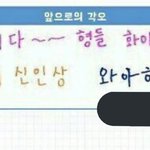 앞으로의 각오
다~~ 형들 화이
신인상 와아